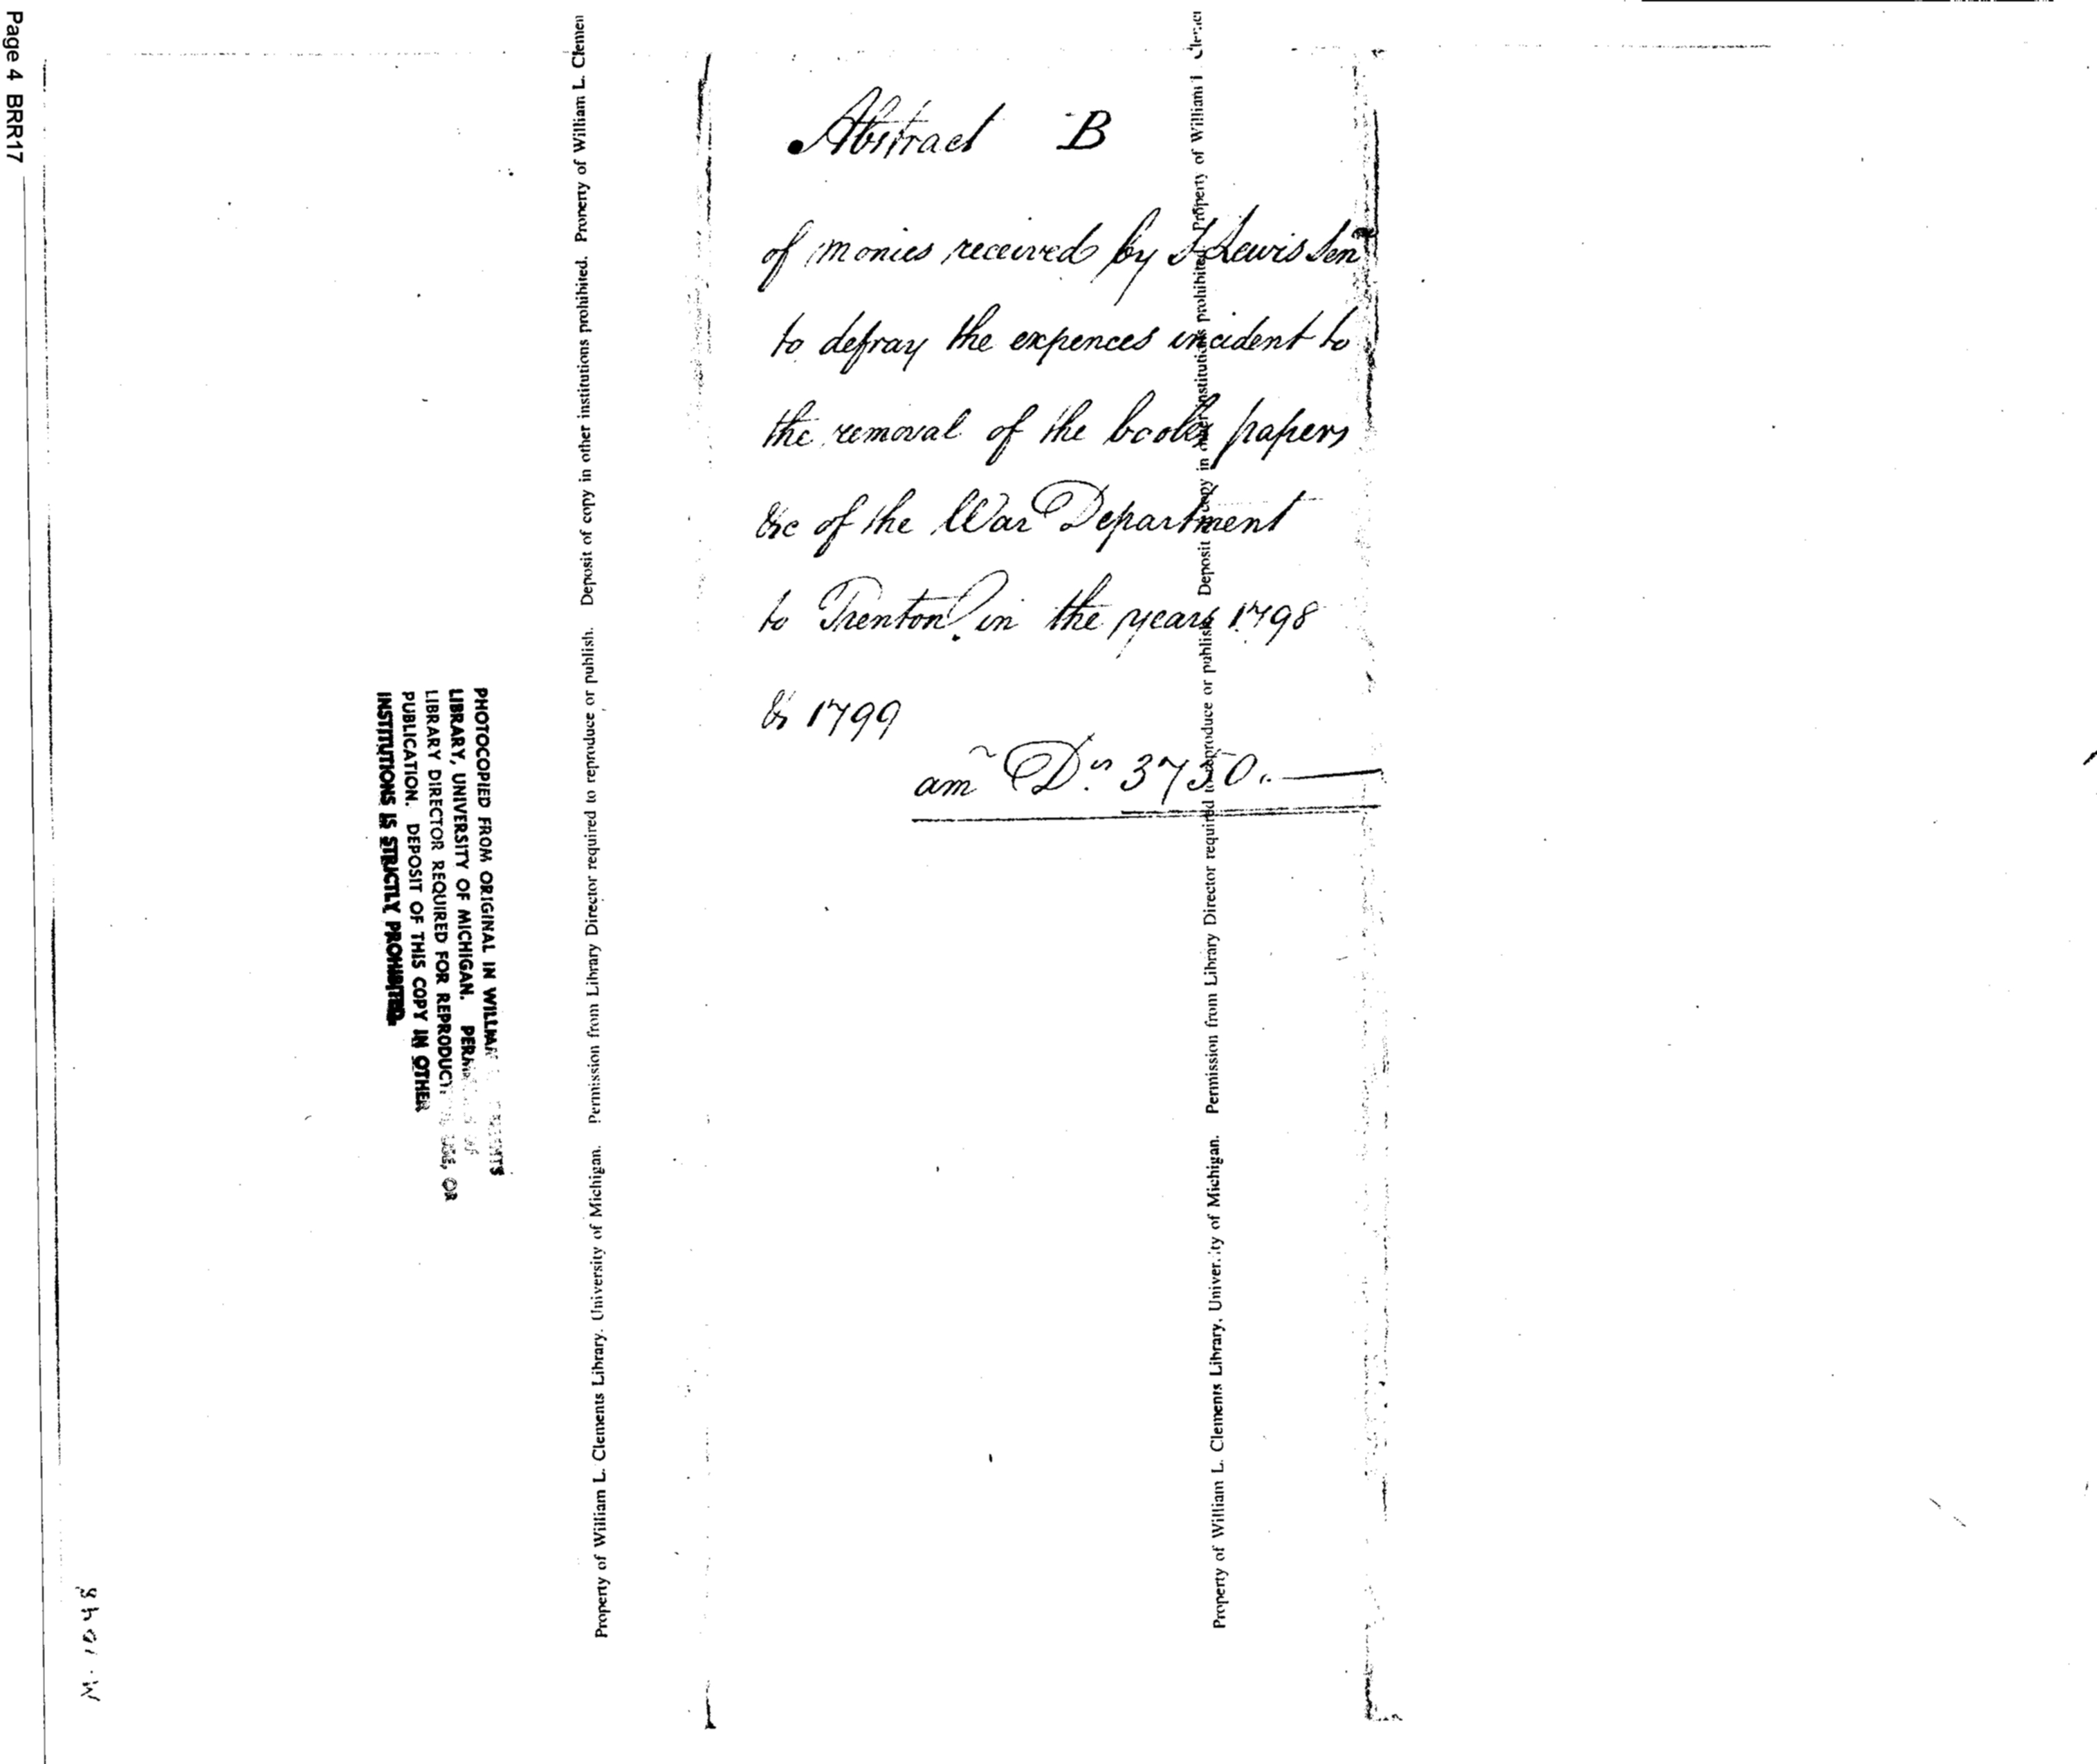 Page 4 BRR17
Abstract B
of monies received by S Lewis Senr
to defray the expences incident to
the removal of the books papers
&c of the War Department
to Trenton in the years 1798
& 1799
amo Drs 3750.
PHOTOCOPIED FROM ORIGINAL IN WILLIAM
LIBRARY, UNIVERSITY OF MICHIGAN.
LIBRARY DIRECTOR REQUIRED FOR REPRODUCT USE, OR
PUBLICATION. DEPOSIT OF THIS COPY IN OTHER
INSTITUTIONS IS STRICTLY PROHIBITED.
Property of William L. Clements Library. University of Michigan. Permission from Library Director required to reproduce or publish. Deposit of copy in other institutions prohibited. Property of William L. Clemen
Property of William L. Clements Library, University of Michigan. Permission from Library Director required to reproduce or publish. Deposit of copy in other institutions prohibited. Property of William
M-1048